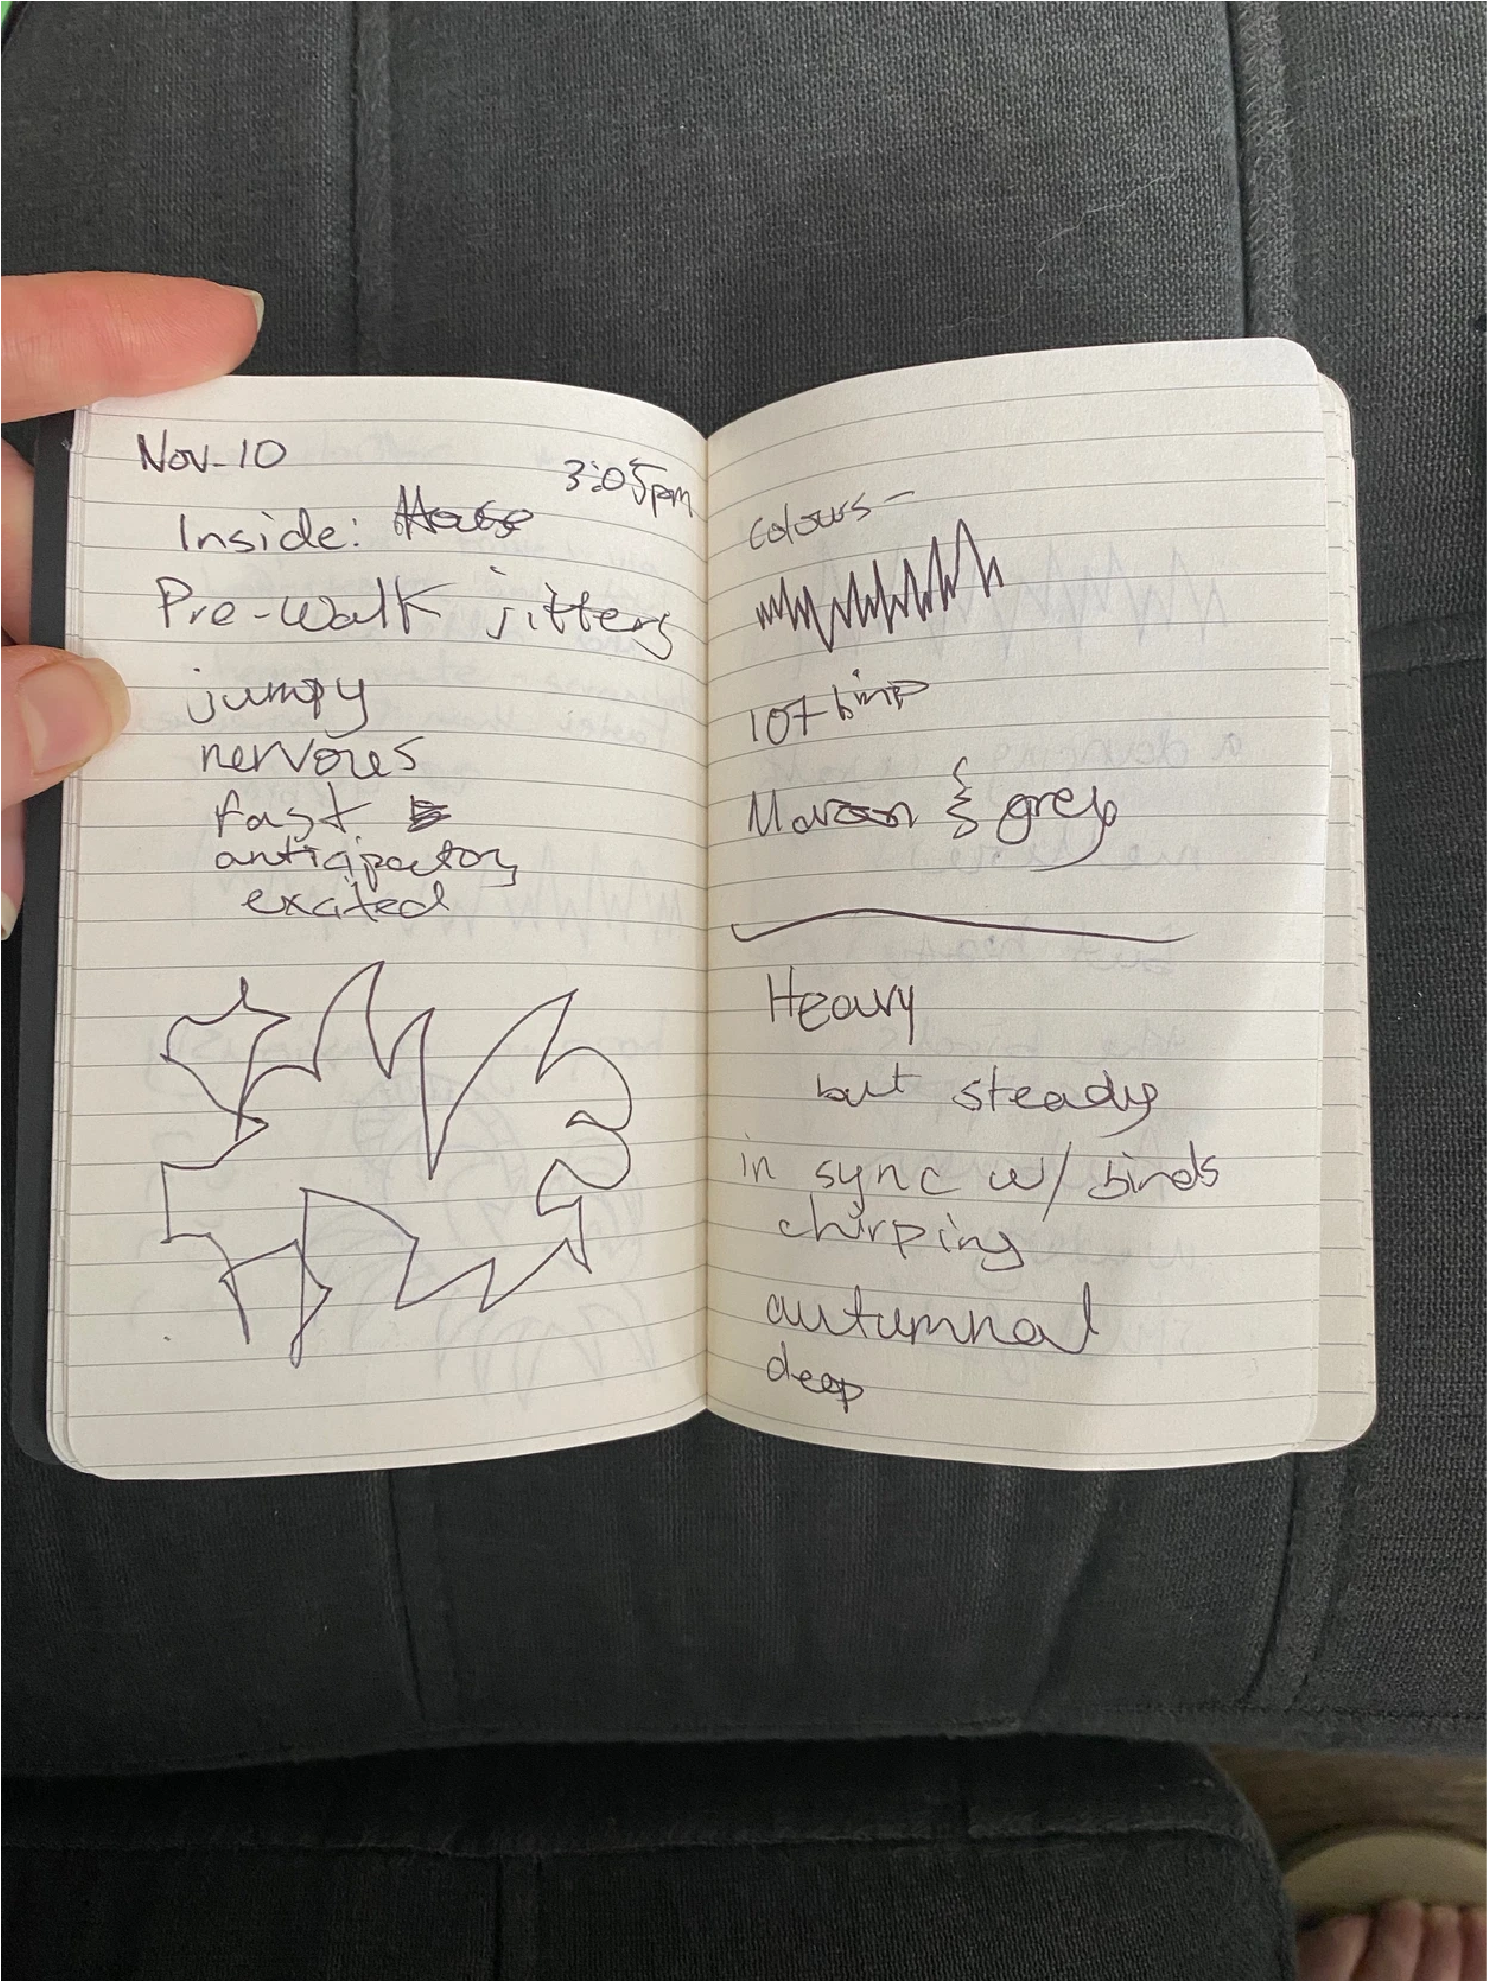 Nov. 10
3:05pm
Inside:
Pre-walk jitters
jumpy
nervous
fast
anticipatory
excited
colours -
107 bmp
Maroon & grey
Heavy
but steady
in sync w/ birds
chirping
autumnal
deep